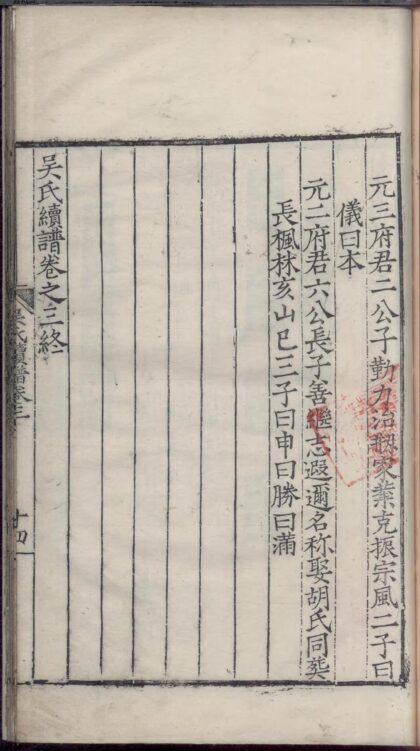 元三府君二公子勤力治家業克振宗風二子曰
儀曰本
元二府君六公長子善繼志遐邇名称娶胡氏同葬
長楓林亥山巳三子曰申曰勝曰滿
吳氏續譜卷之三終
吳氏續譜卷三
十四